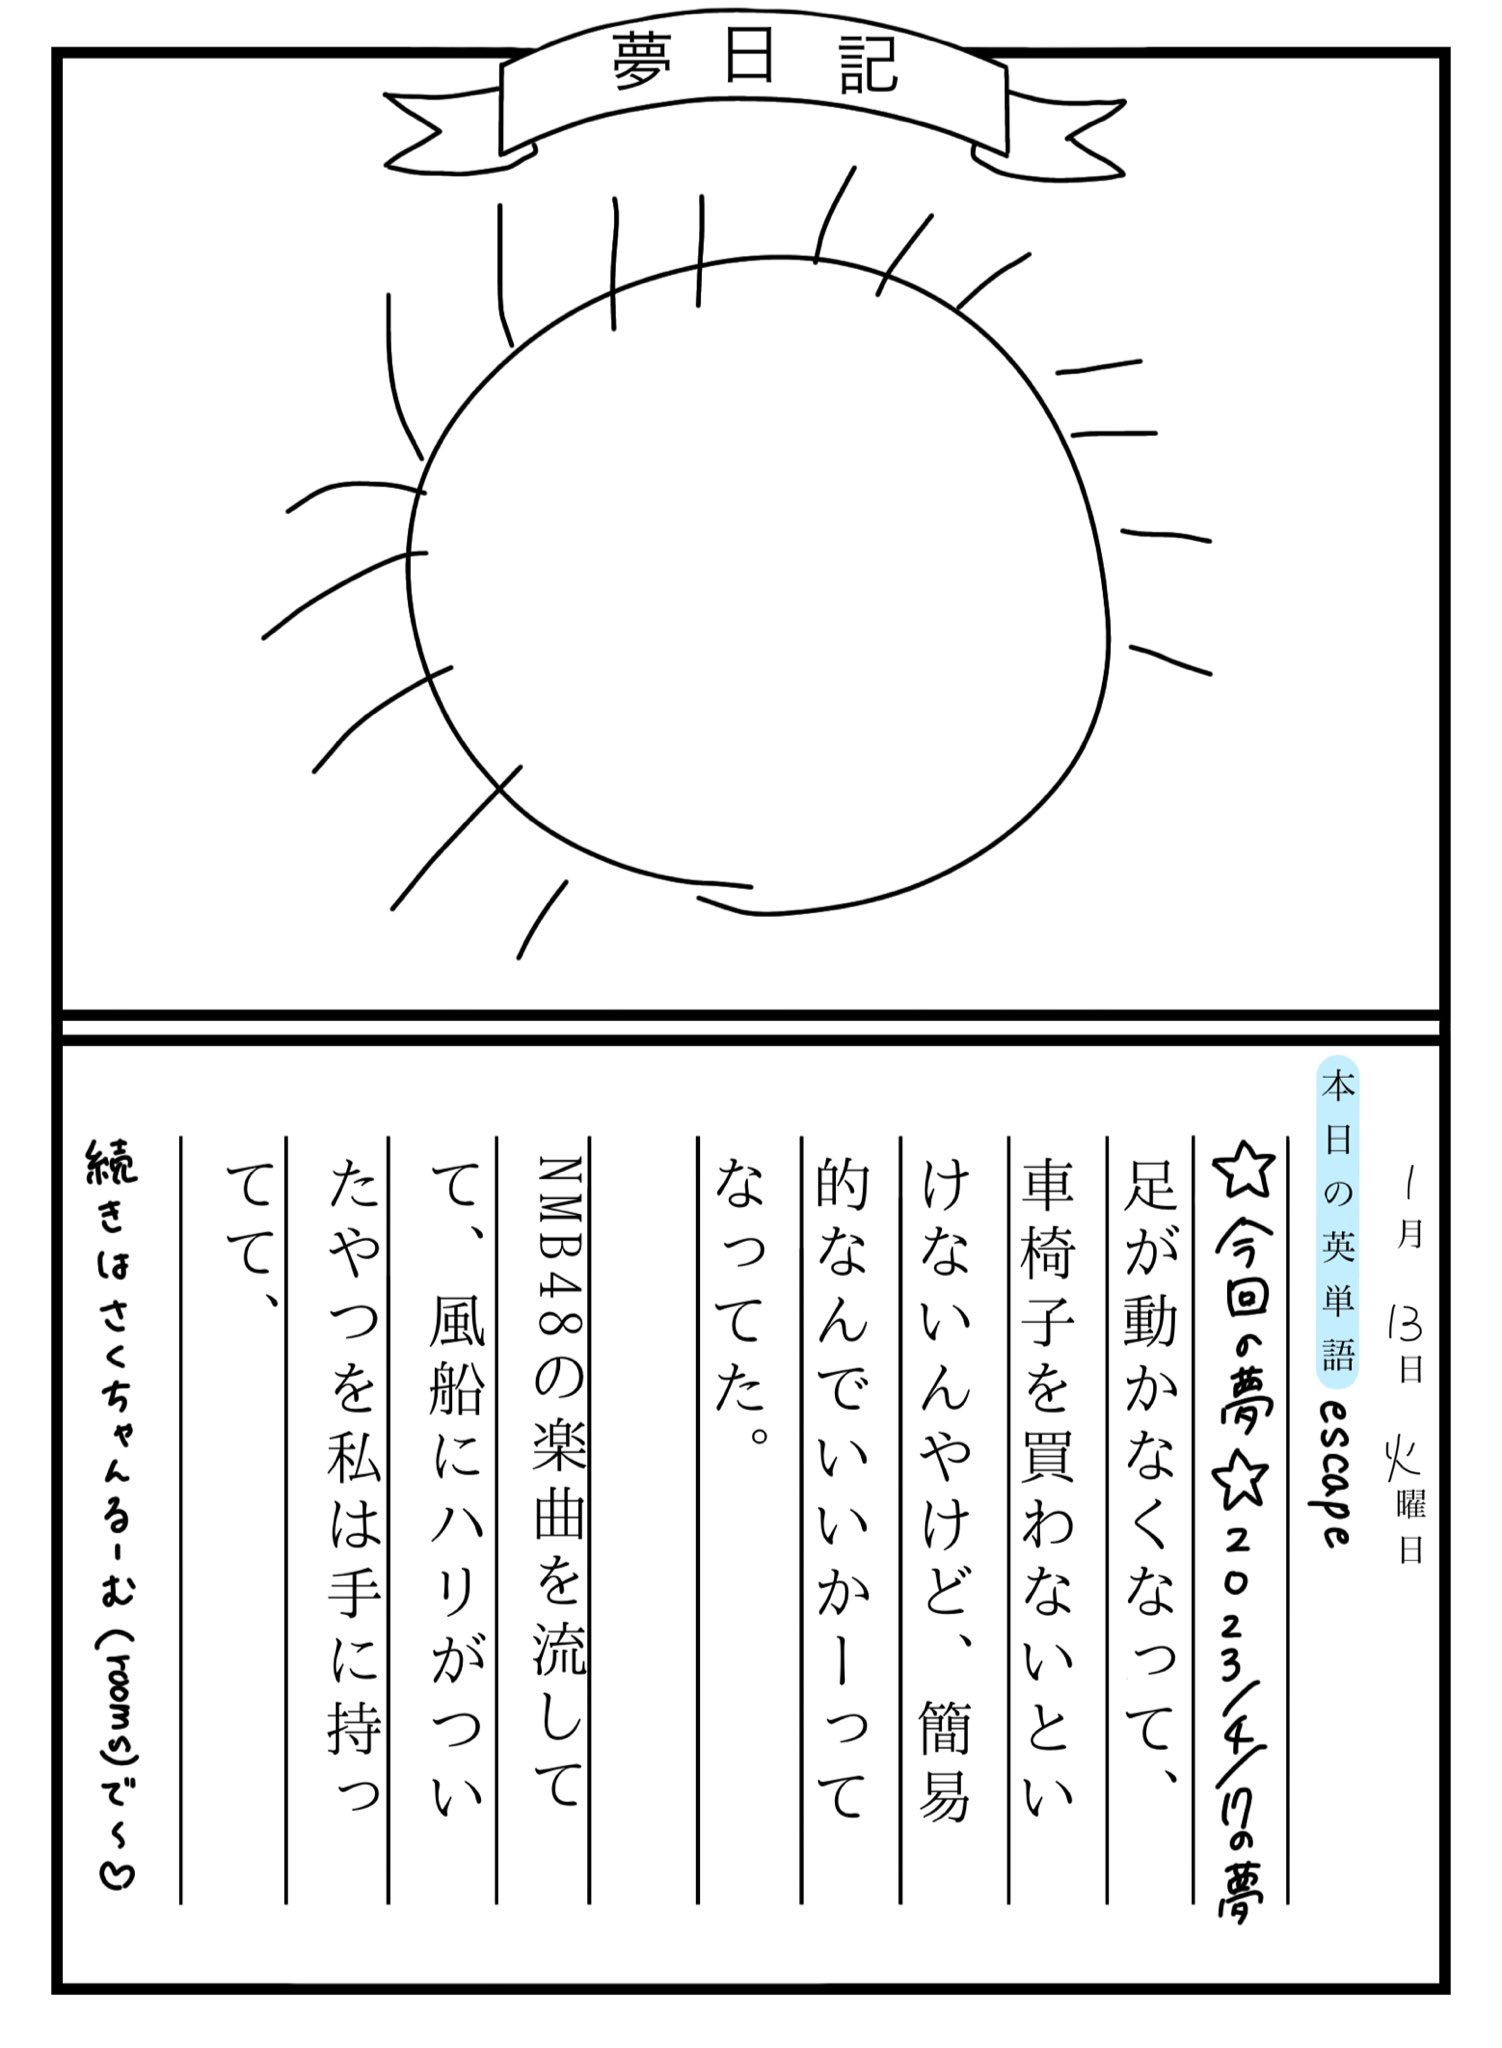 夢日記
1月 13日 火曜日
本日の英単語 escape
☆今回の夢☆2023/4/17の夢
足が動かなくなって、
車椅子を買わないとい
けないんやけど、簡易
的なんでいいかーって
なってた。
NMB48の楽曲を流して
て、風船にハリがつい
たやつを私は手に持っ
てて、
続きはさくちゃんるーむ(rooms)で〜♡